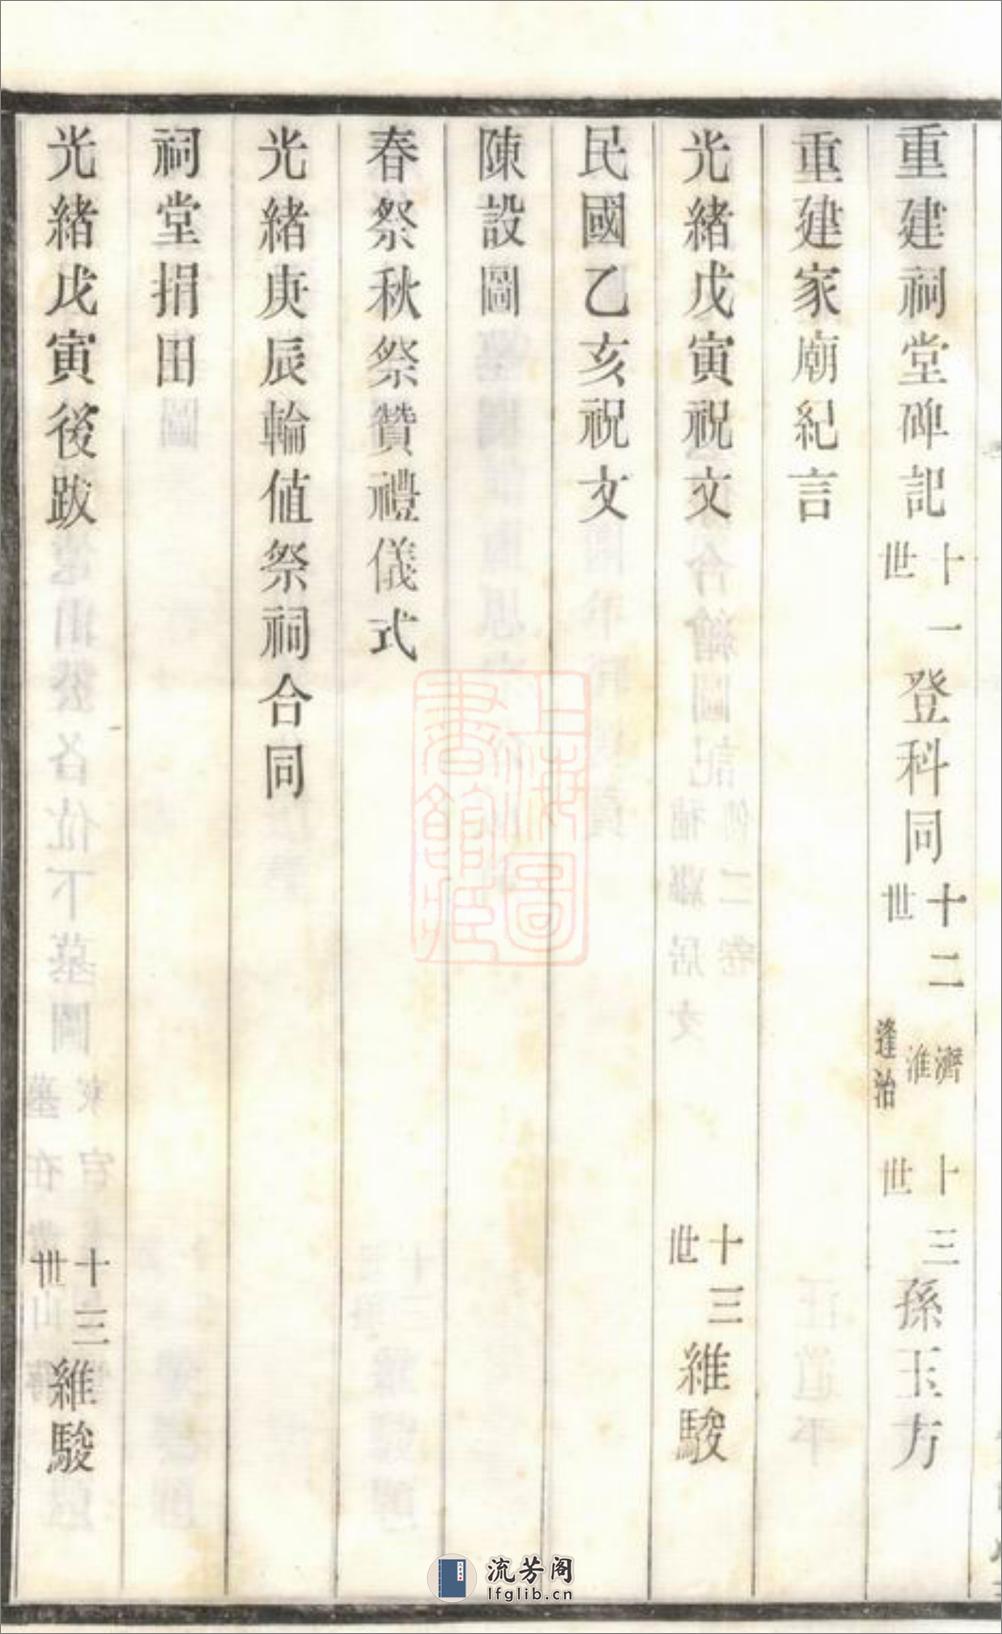 重建祠堂碑記 十一世 登科同 十二世 濟淮逢治 十三世 孫玉方
重建家廟紀言
光緒戊寅祝文 十三世 維駿
民國乙亥祝文
陳設圖
春祭秋祭贊禮儀式
光緒庚辰輪值祭祠合同
祠堂捐田
光緒戊寅後跋 十三世 維駿
上海圖書館藏
流芳阁
lfglib.cn